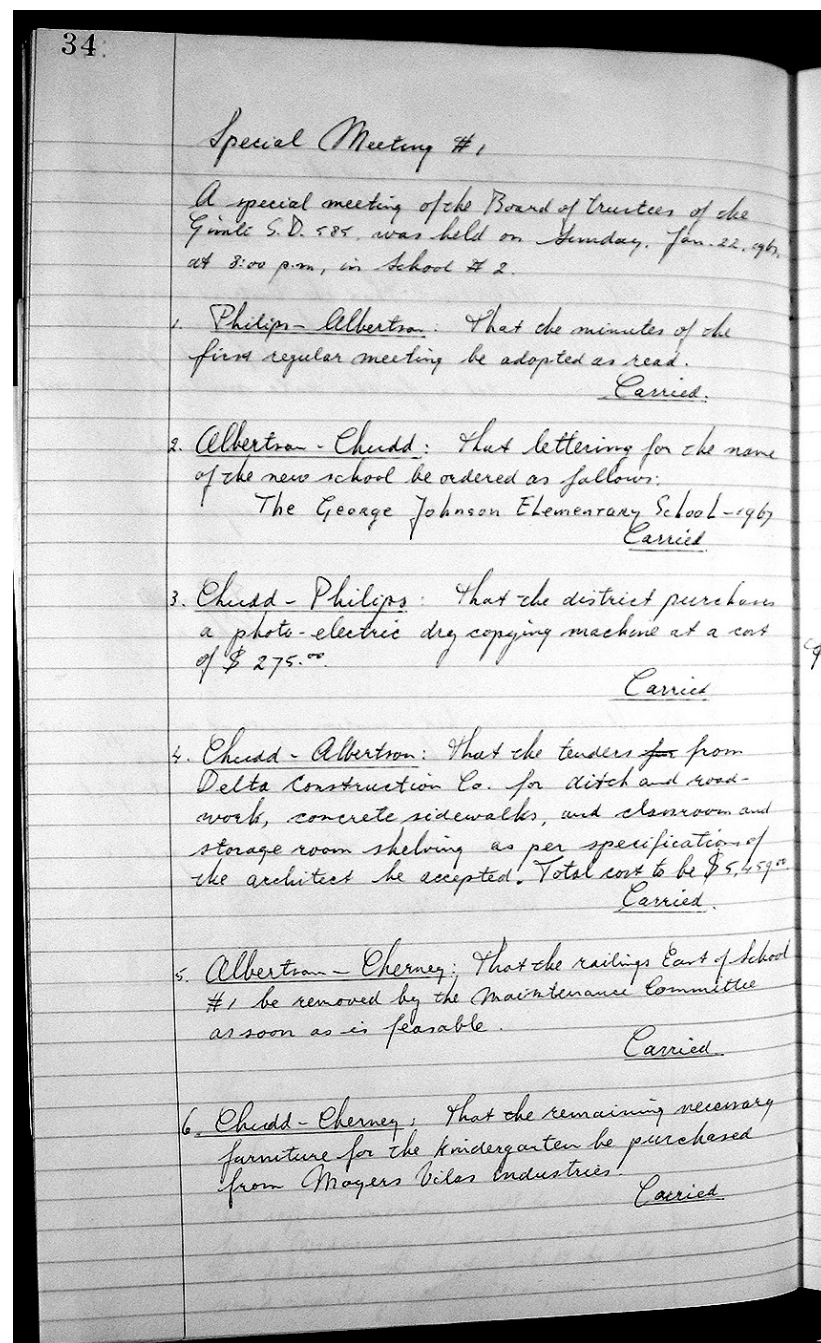 34
Special Meeting # 1
A special meeting of the Board of trustees of the
Gimli S.D. 585, was held on Sunday, Jan. 22, 1967,
at 8:00 p.m, in School # 2.
1. Philips - Albertson: That the minutes of the
first regular meeting be adopted as read.
Carried.
2. Albertson - Chudd: That lettering for the name
of the new school be ordered as follows:
The George Johnson Elementary School - 1967
Carried
3. Chudd - Philips: That the district purchases
a photo-electric dry copying machine at a cost
of $ 275.00.
Carried
4. Chudd - Albertson: That the tenders for from
Delta Construction Co. for ditch and road-
work, concrete sidewalks, and classroom and
storage room shelving as per specification of
the architect be accepted. Total cost to be $5,459.00
Carried.
5. Albertson - Cherney: That the railings East of School
#1 be removed by the Maintenance Committee
as soon as is feasable.
Carried
6. Chudd - Cherney: That the remaining necessary
furniture for the Kindergarten be purchased
from Moyers Vilas Industries.
Carried